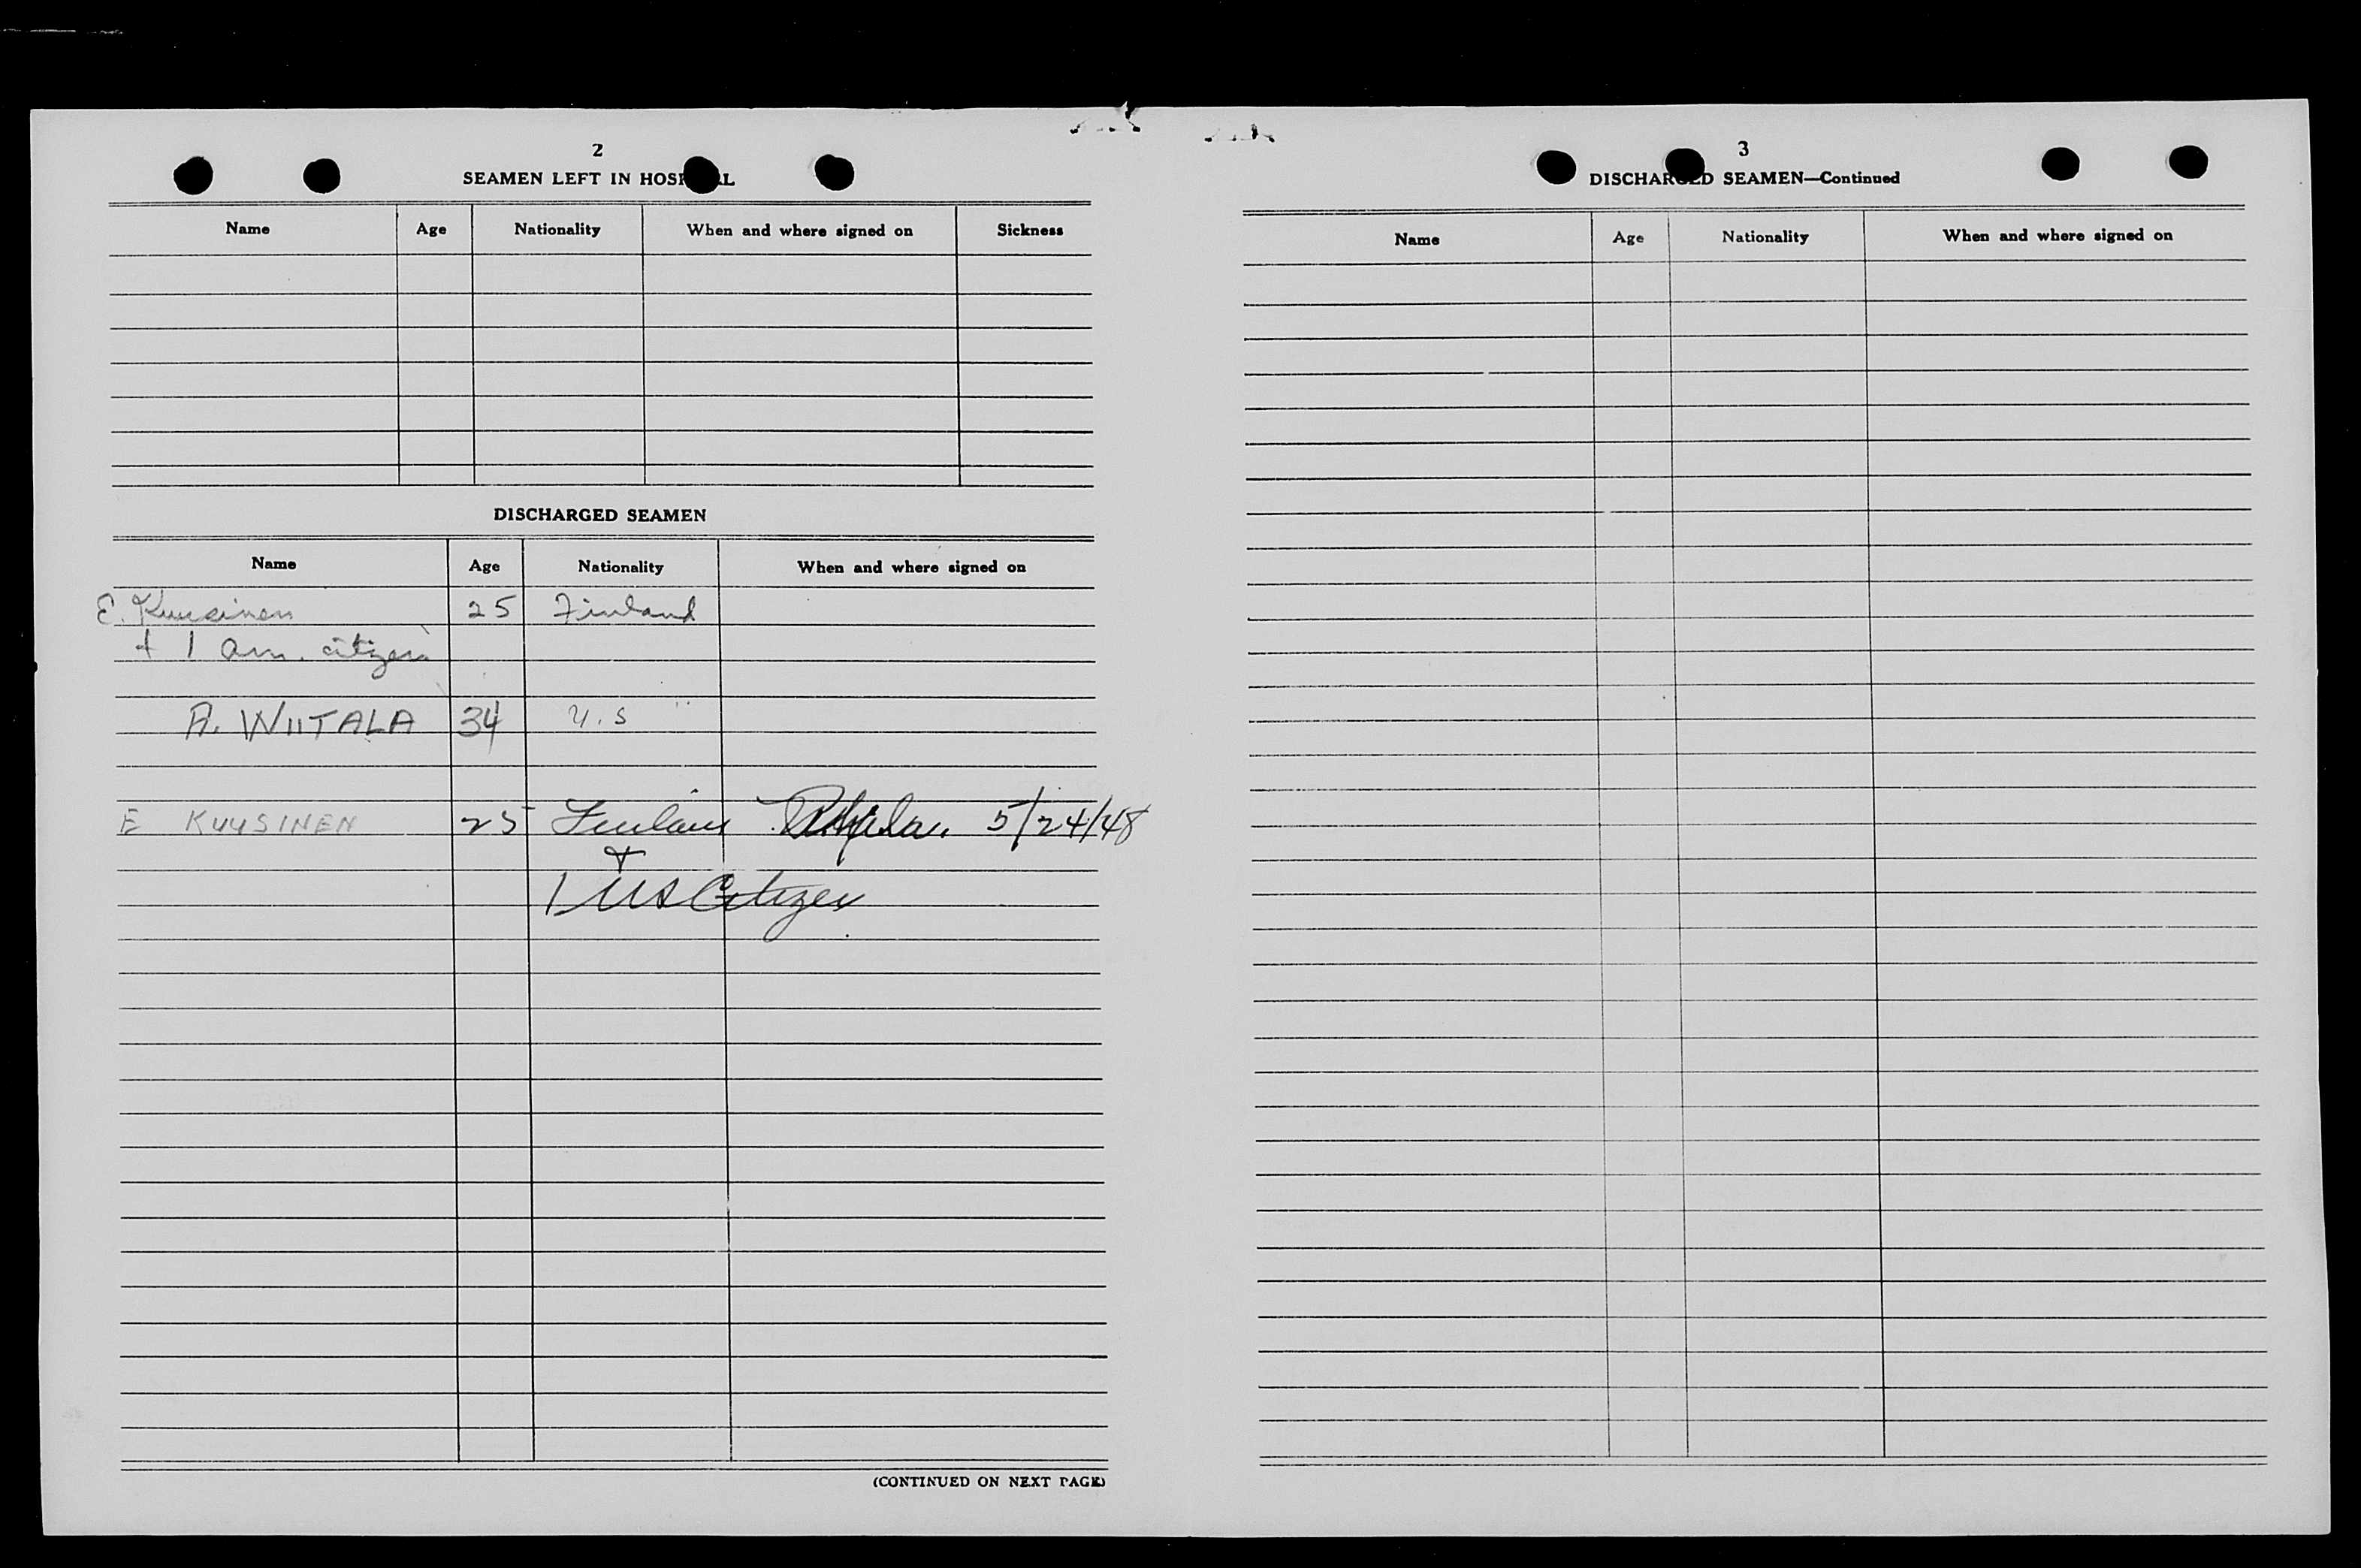 2
SEAMEN LEFT IN HOSPITAL
Name Age Nationality When and where signed on Sickness
DISCHARGED SEAMEN
Name Age Nationality When and where signed on
E. Kuusinen 25 Finland
+ 1 Am. citizen
A. WIITALA 34 U.S
E KUUSINEN 25 Finland Phila. 5/24/48
+
1 US Citizen
(CONTINUED ON NEXT PAGE)
3
DISCHARGED SEAMEN—Continued
Name Age Nationality When and where signed on